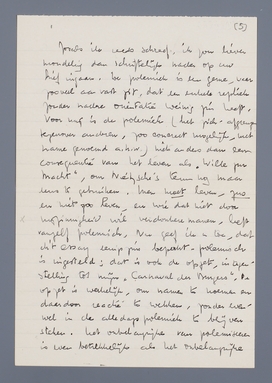 (5)
Zoals ik reeds schreef, ik zou liever
mondeling dan schriftelijk nader op uw
brief ingaan. De polemiek is een genre, waar
zooveel aan vast zit, dat een enkele repliek
zonder nadere oriëntatie weinig zin heeft.
Voor mij is de polemiek (het zich-afgrenzen
tegenover anderen, zoo concreet mogelijk, met
name genoemd a.h.w.) niet anders dan een
consequentie van het leven als "Wille zur
Macht", om Nietzsche's term nog maar
eens te gebruiken. Men moet leven, zus
en niet zoo leven, en wie dat niet door
wil verdoezelen, leeft
vanzelf polemisch. Nu geef ik u toe, dat
dit essay zeer bepaald polemisch
is ingesteld; dat is ook de opzet, in tegen-
stelling tot mijn "Carnaval der Burgers". De
opzet is werkelijk, om name te noemen en
daardoor reactie te wekken, zonder even-
wel in de alledaagse polemiek te blijven
steken. Het onbelangrijke van polemiseeren
is even betrekkelijk als het onbelangrijke